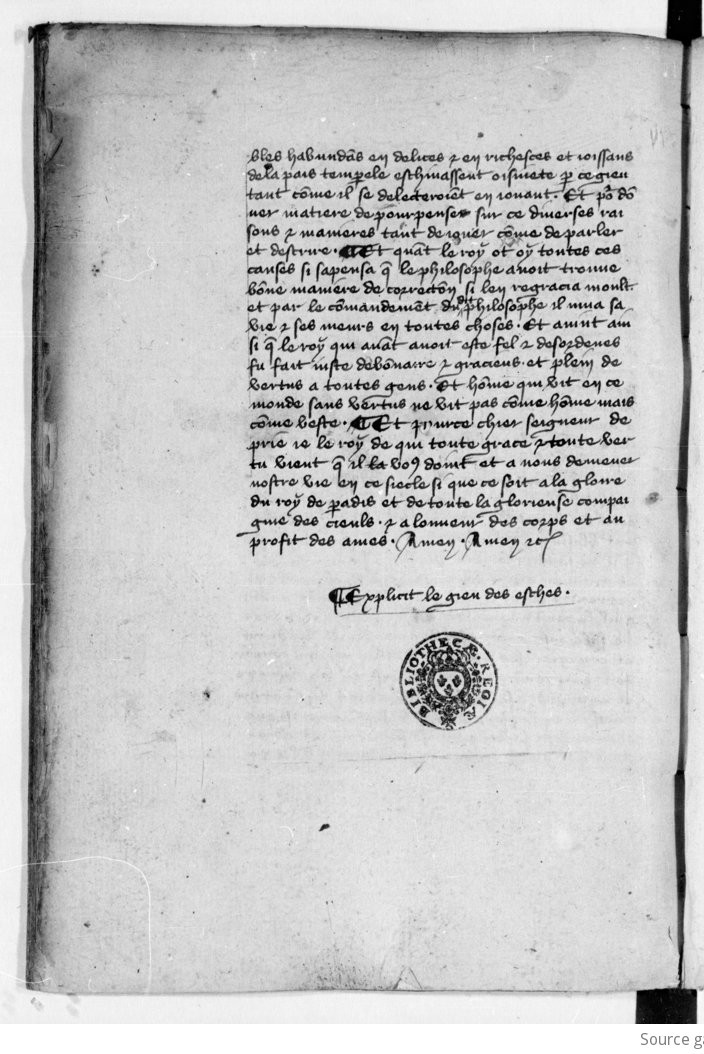 bles habundãs en delices ⁊ en richesces et ioissans
dela pais temp̱ele eschiuassent oisiuete p̱ ce gieu
tant cõme il se delecteroiẽt en iouant . Et po͛ dõ
ner matiere de pourpenser sur ce diuerses rai
sons ⁊ manieres tant de iouer cõme de parler
et descrire . ¶ Et quãt le roy ot oy toutes ces
causes si sapensa q̃ le philosophe auoit trouue
bõne maniere de correctõn si len regracia moult
et par le cõmandemẽt du dit philosophe il mua sa
vie ⁊ ses meurs en toutes choses . Et auint ain
si q̃ le roy qui auãt auoit este fel ⁊ desordenes
fu fait iuste debõnaire ⁊ graciens . et plein de
vertus a toutes gens . Et hõme qui vit en ce
monde sans vertus ne vit pas cõme hõme mais
cõme beste . ¶ Et pource chier seigneur de
prie ie le roy de qui toute grace ⁊ toute ver
tu vient q̃ il la voꝰ doint et a nous demener
nostre vie en ce siecle si que ce soit a la gloire
du roy de p̱adis et de toute la glorieuse compai
gnie des cieuls . ⁊ a lonneur des corps et au
profit des ames . Amen . Amen ⁊c̃
¶ Explicit le gieu des esches .
BIBLIOTHECÆ REGIÆ
Source ga